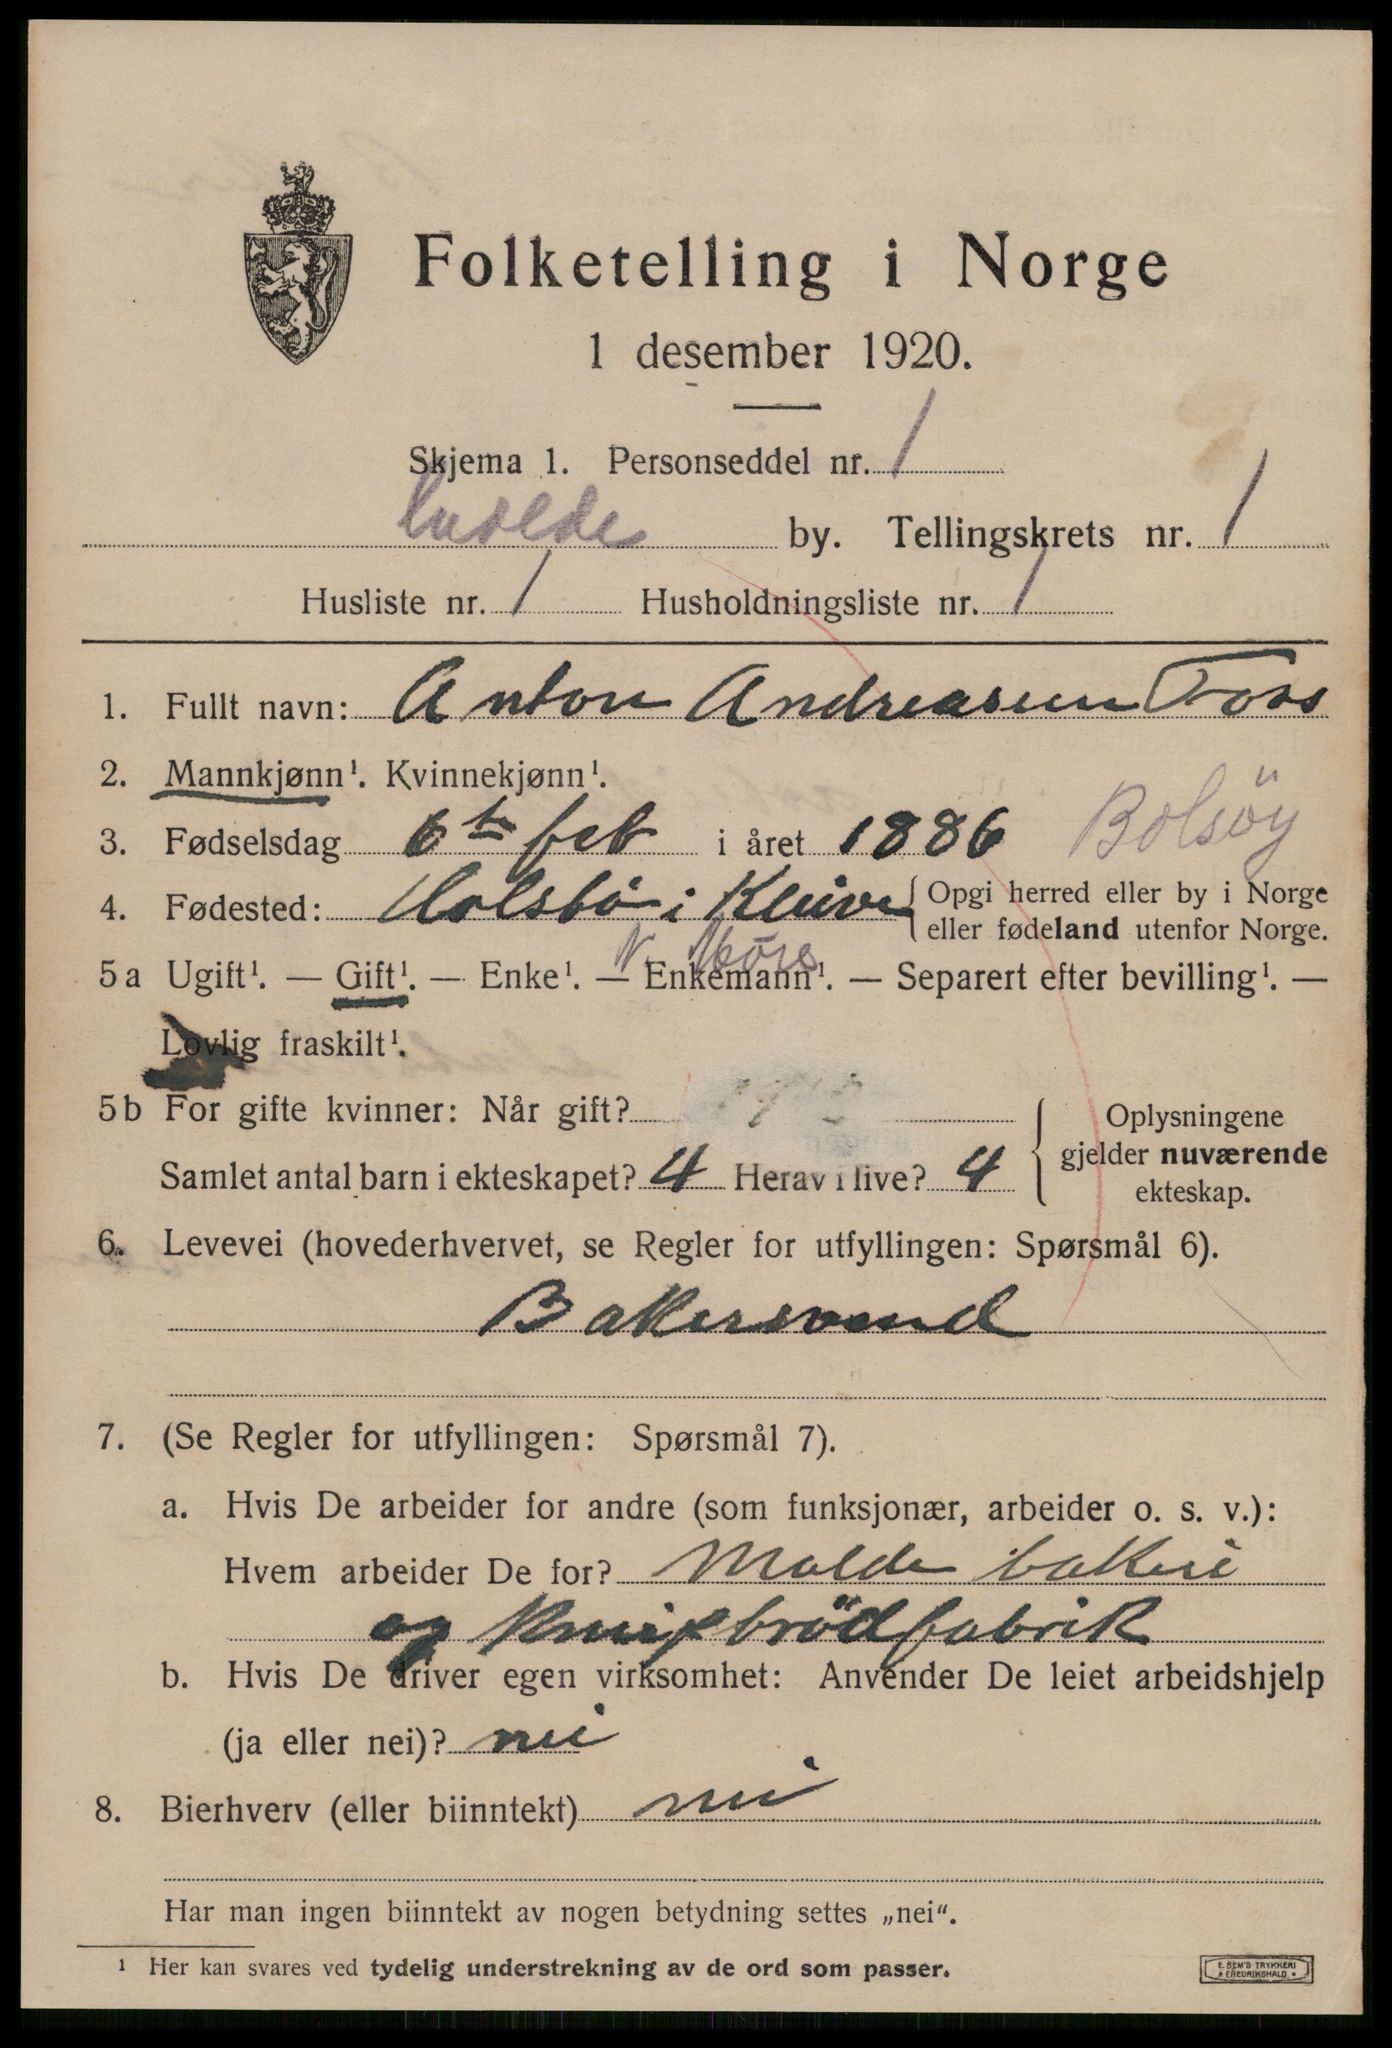 Folketelling i Norge
1 desember 1920.
Skjema 1. Personseddel nr. 1
Molde by. Tellingskrets nr. 1
Husliste nr. 1 Husholdningsliste nr. 1
1. Fullt navn: Anton Andreassen Foss
2. Mannkjønn¹. Kvinnekjønn¹.
3. Fødselsdag 6te feb i året 1886 Bolsöy
4. Fødested: Holsbö i Kleive { Opgi herred eller by i Norge
eller fødeland utenfor Norge.
N. Møre
5a Ugift¹. — Gift¹. — Enke¹. — Enkemann¹. — Separert efter bevilling¹. —
Lovlig fraskilt¹.
5b For gifte kvinner: Når gift?
Samlet antal barn i ekteskapet? 4 Herav i live? 4
Oplysningene
gjelder nuværende
ekteskap.
6. Levevei (hovederhvervet, se Regler for utfyllingen: Spørsmål 6).
Bakersvend
7. (Se Regler for utfyllingen: Spørsmål 7).
a. Hvis De arbeider for andre (som funksjonær, arbeider o. s. v.):
Hvem arbeider De for? Molde bakeri
og knipbrödfabrik
b. Hvis De driver egen virksomhet: Anvender De leiet arbeidshjelp
(ja eller nei)? nei
8. Bierhverv (eller biinntekt) nei
Har man ingen biinntekt av nogen betydning settes „nei“.
¹ Her kan svares ved tydelig understrekning av de ord som passer.
E. SEM'S TRYKKERI
FREDRIKSHALD